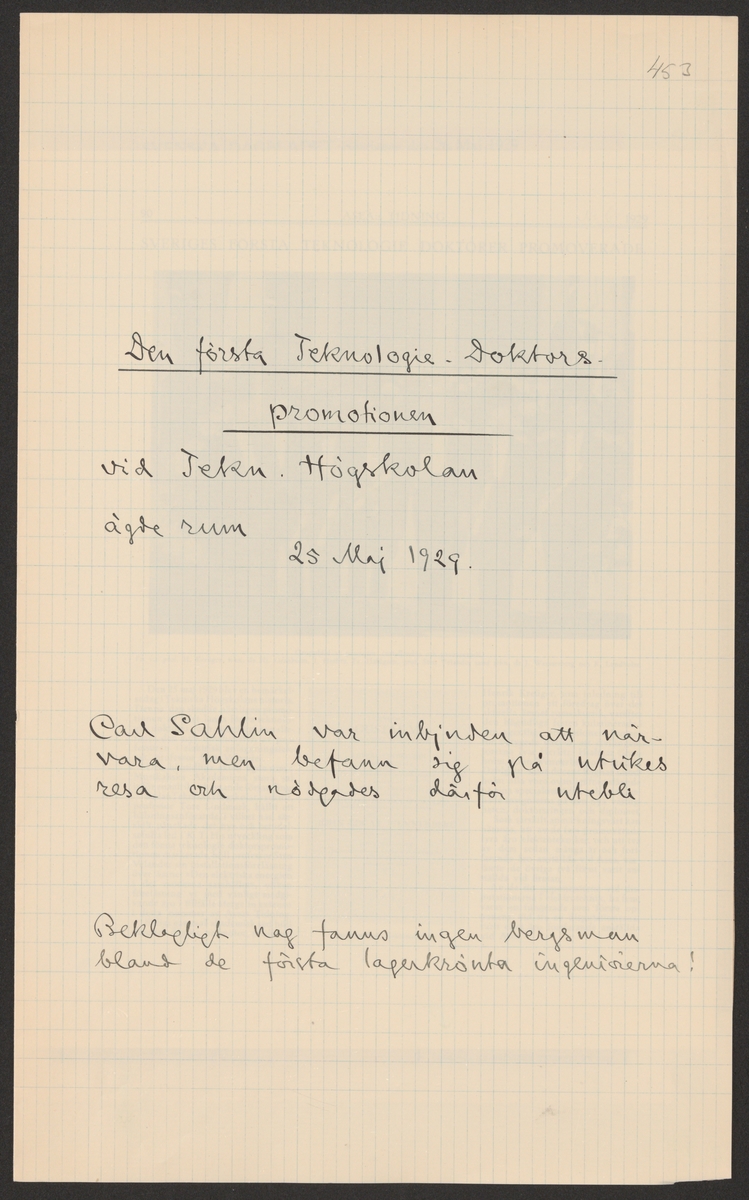 453
Den första Teknologie-Doktors-
promotionen
vid Tekn. Högskolan
ägde rum
25 Maj 1929.
Carl Sahlin var inbjuden att när-
vara, men befann sig på utrikes
resa och nödgades därför utebli
Beklagligt nog fanns ingen bergsman
bland de första lagerkrönta ingeniörerna!